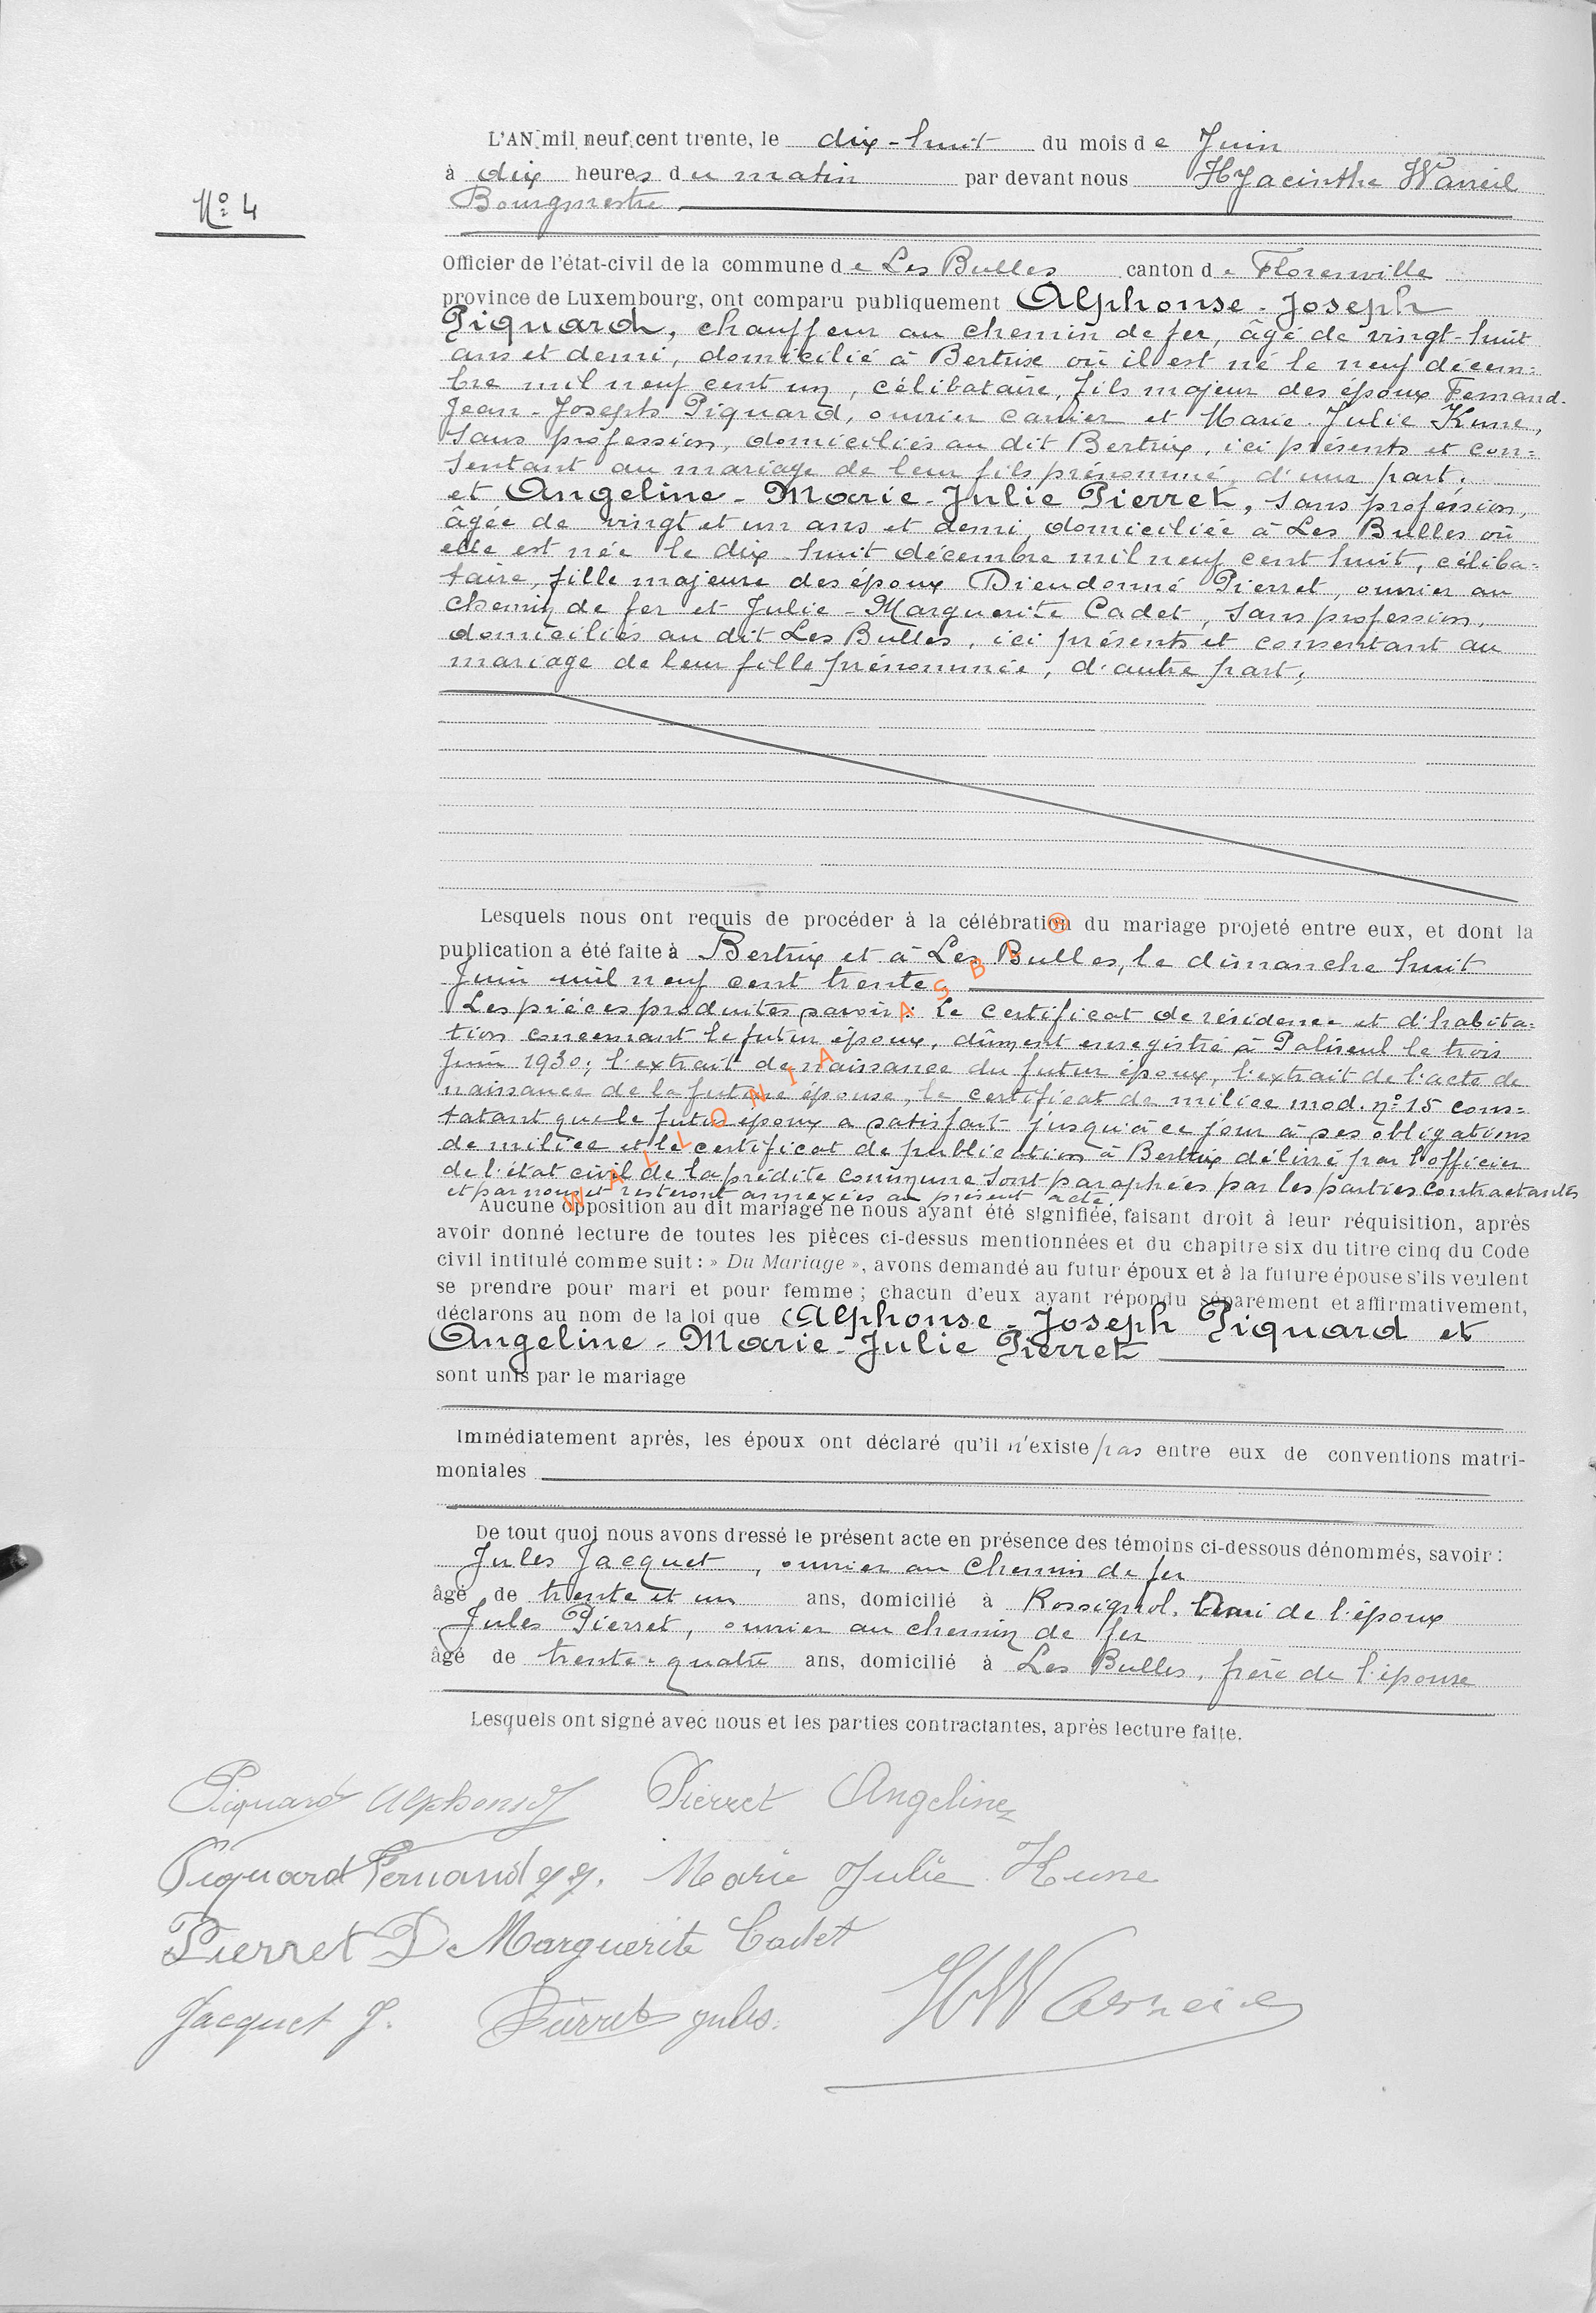 N° 4
L'AN mil neuf cent trente, le dix-huit du mois de Juin
à dix heures du matin par devant nous Hyacinthe
Bourgmestre
Officier de l'état-civil de la commune de Les Bulles canton de Florenville
province de Luxembourg, ont comparu publiquement Alphonse-Joseph
Piquard, chauffeur au chemin de fer, âgé de vingt-huit
ans et demi, domicilié à Bertrix où il est né le neuf décem-
bre mil neuf cent un, célibataire, fils majeur des époux Fernand-
Jean-Joseph Piquard, ouvrier carrier et Marie-Julie Kune,
sans profession, domiciliés au dit Bertrix, ici présents et con-
sentant au mariage de leur fils prénommé, d'une part.
et Angeline-Marie-Julie Pierret, sans profession,
âgée de vingt et un ans et demi, domiciliée à Les Bulles où
elle est née le dix-huit décembre mil neuf cent huit, céliba-
taire, fille majeure des époux Dieudonné Pierret, ouvrier au
chemin de fer et Julie-Marguerite Cadet, sans profession,
domiciliés au dit Les Bulles, ici présents et consentant au
mariage de leur fille prénommée, d'autre part,
Lesquels nous ont requis de procéder à la célébration du mariage projeté entre eux, et dont la
publication a été faite à Bertrix et à Les Bulles, le dimanche huit
Juin mil neuf cent trente.
Les pièces produites savoir: le certificat de résidence et d'habita-
tion concernant le futur époux, dûment enregistré à Paliseul le trois
Juin 1930; l'extrait de naissance du futur époux, l'extrait de l'acte de
naissance de la future épouse, le certificat de milice mod. n° 15 cons-
tatant que le futur époux a satisfait jusqu'à ce jour à ses obligations
de milice et le certificat de publication à Bertrix délivré par l'officier
de l'état civil de la prédite commune sont paraphées par les parties contractantes
et par nous et resteront annexées au présent acte.
Aucune opposition au dit mariage ne nous ayant été signifiée, faisant droit à leur réquisition, après
avoir donné lecture de toutes les pièces ci-dessus mentionnées et du chapitre six du titre cinq du Code
civil intitulé comme suit: » Du Mariage », avons demandé au futur époux et à la future épouse s'ils veulent
se prendre pour mari et pour femme; chacun d'eux ayant répondu séparement et affirmativement,
déclarons au nom de la loi que Alphonse-Joseph Piquard et
Angeline-Marie-Julie Pierret
sont unis par le mariage
Immédiatement après, les époux ont déclaré qu'il n'existe pas entre eux de conventions matri-
moniales
De tout quoi nous avons dressé le présent acte en présence des témoins ci-dessous dénommés, savoir:
Jules Jacquet, ouvrier au chemin de fer
âgé de trente et un ans, domicilié à Rossignol. Ami de l'époux
Jules Pierret, ouvrier au chemin de fer
âgé de trente-quatre ans, domicilié à Les Bulles, frère de l'épouse
Lesquels ont signé avec nous et les parties contractantes, après lecture faite.
Piquard Alphonse Pierret Angeline
Piquard Fernand Marie Julie Kune
Pierret D Marguerite Cadet
Jacquet J. Pierret Jules.
WALLONIA ASBL ®